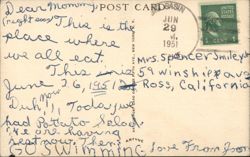 Dear Mommy,
POST CARD
(right one) This is the
place where
we all eat.
This
June 26, 1951
Duh!!, Today we
had Potato Salad
we are having
rest now. Then
GO SWIMMING
JUN
29
1951
Mrs. Spencer Smiley
59 Winship ave
Ross, California
Love From Jon